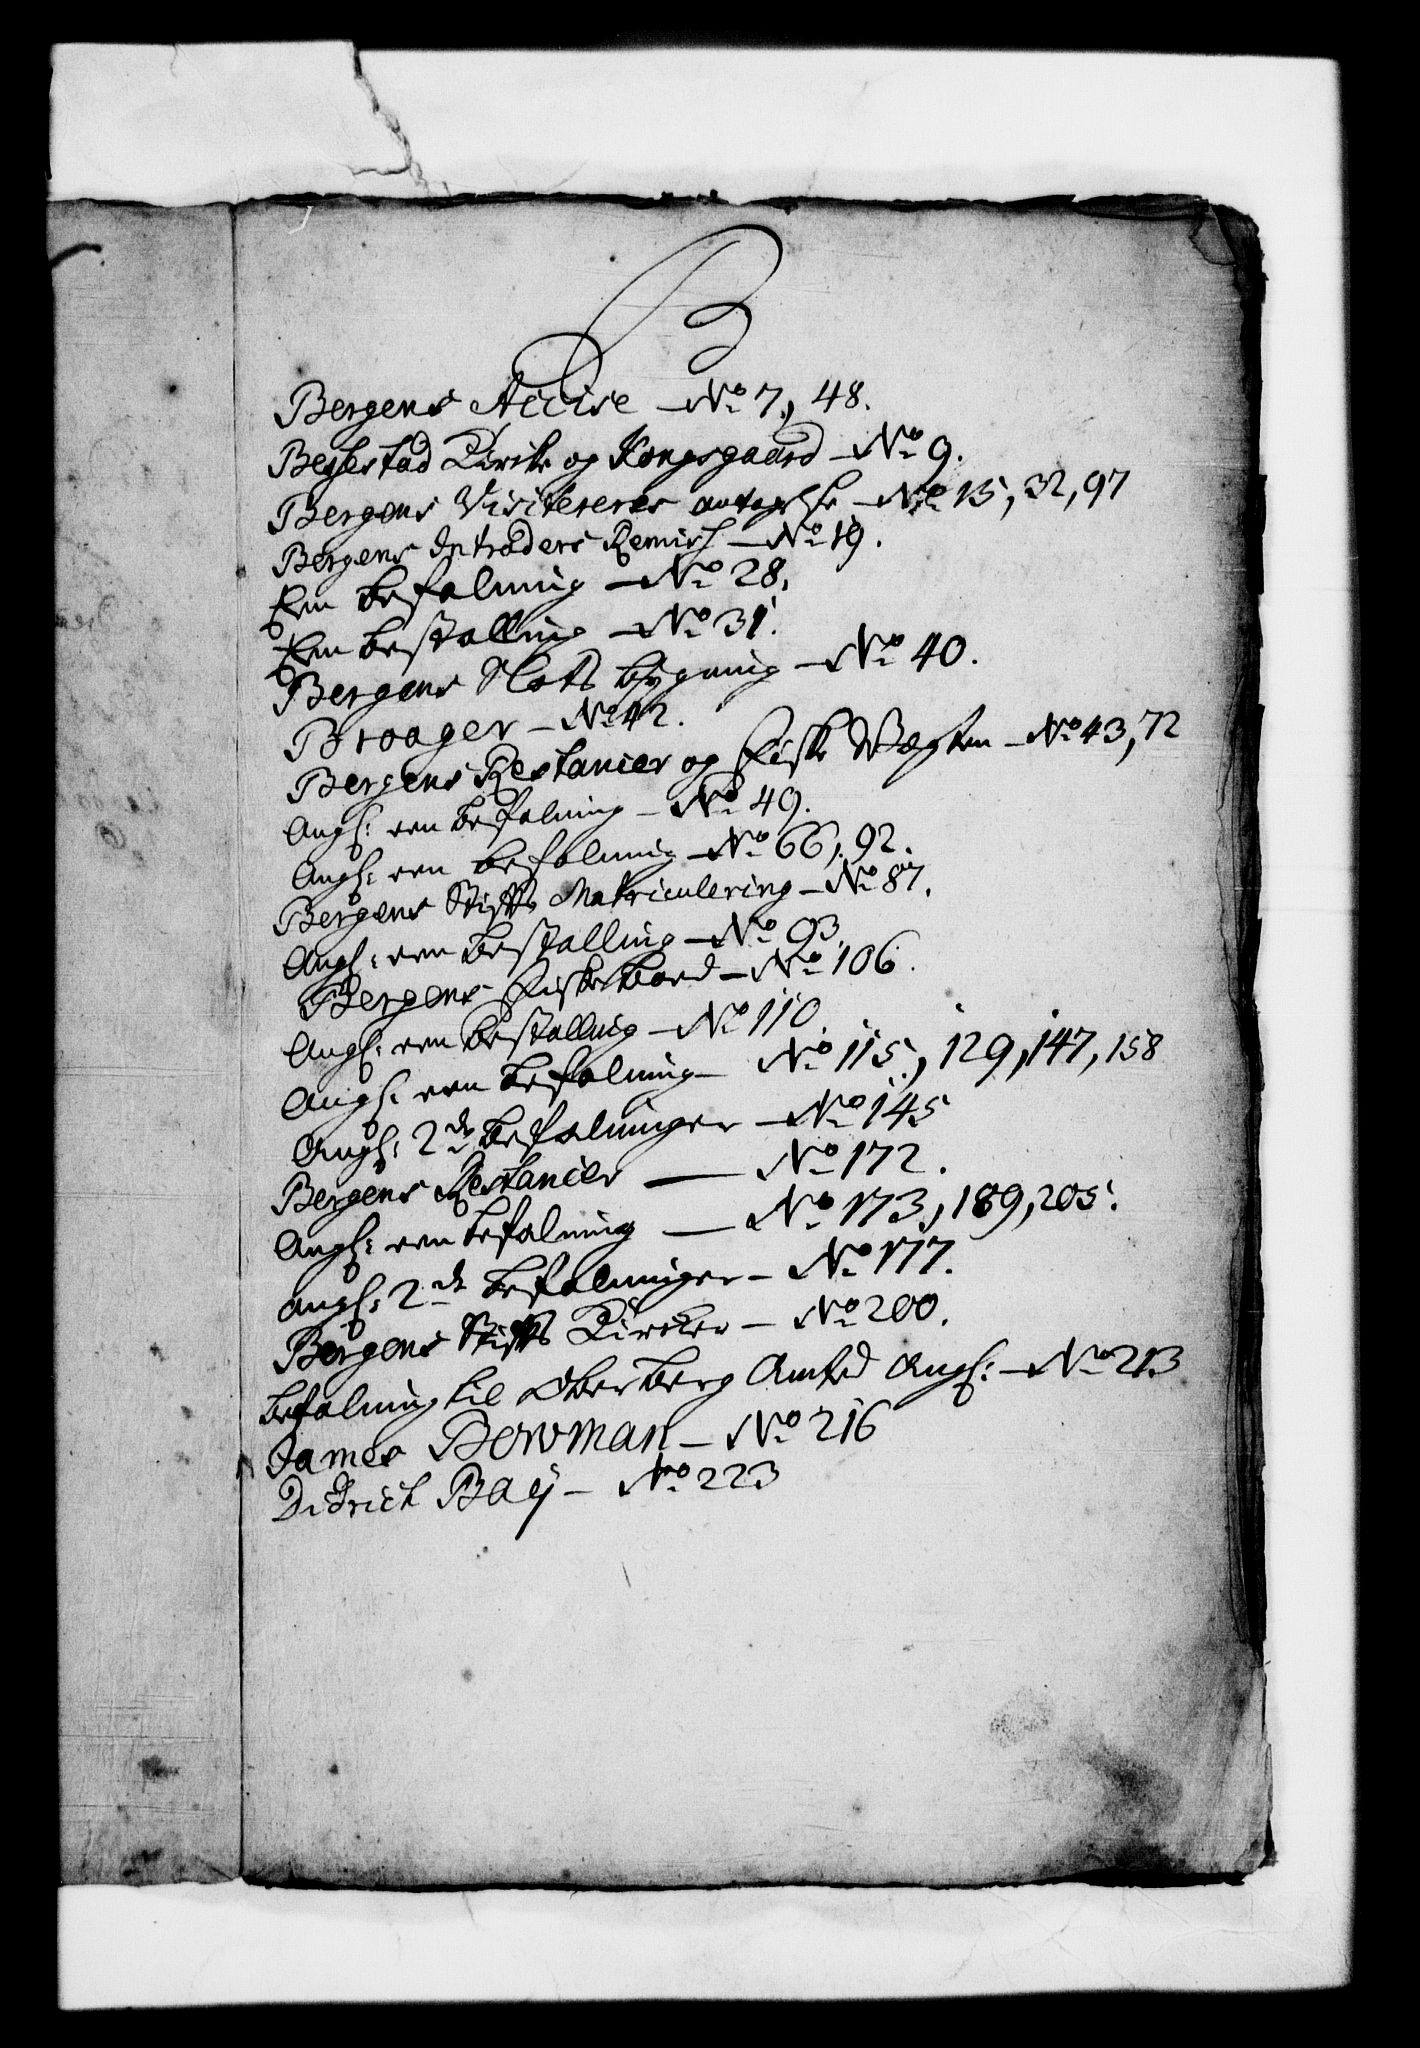 B
Bergens Accise — No 7, 48.
Kircke og Kongsgaard — No 9.
Bergens Visiterers antagelse — No 15, 32, 97
Bergens Intraders Remisj — No 19.
Een befalning — No 28.
Een bestalling — No 31.
Bergens Slots bygning — No 40.
Broager — No 42.
Bergens Restancier og Fiske Wegten — No 43, 72
Angf: een befalning — No 49.
Angf: een befalning — No 66, 92.
Bergens Stifts Matriculering — No 87.
Angf: een bestalling — No 93.
Bergens Fiskebord — No 106.
Angf: een bestalling — No 110.
Angf: een befalning — No 115, 129, 147, 158
Angf: 2de befalninger — No 145
Bergens Restancier — No 172.
Angf: een befalning — No 173, 189, 205.
angf: 2de befalninger — No 177.
Bergens Stifts Kircker — No 200.
befalning til Oberberg Amted Angf: — No 213
James Bowman — No 216
Didrich Baÿ — No 223